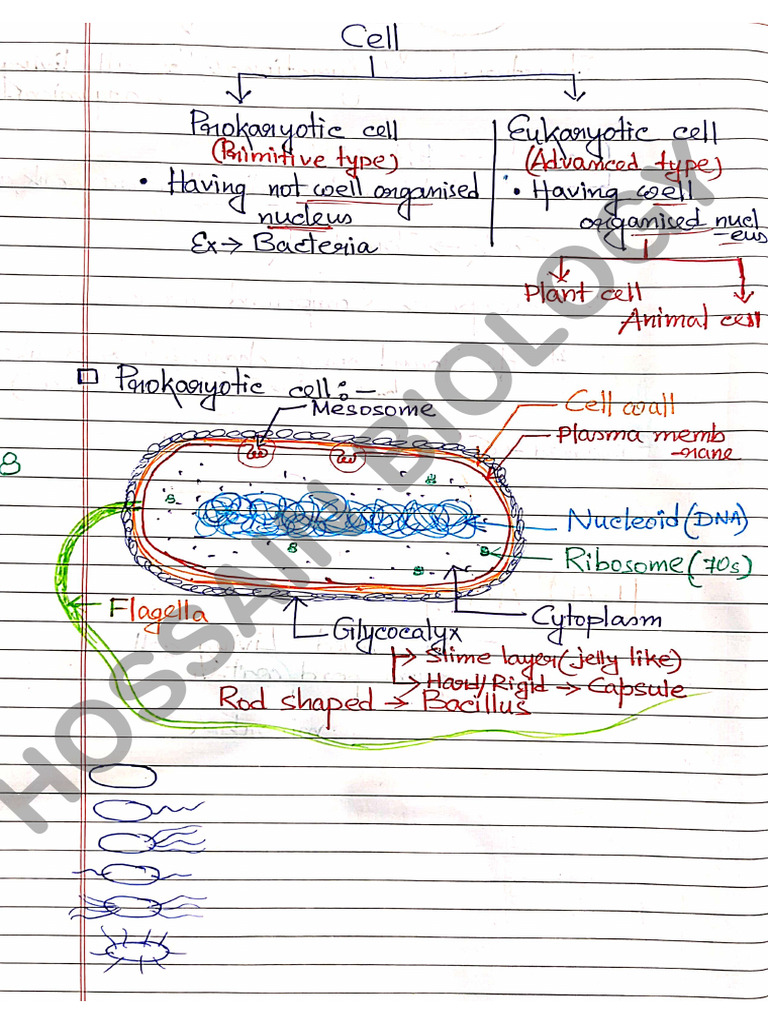 Cell
Prokaryotic cell
(Primitive type)
• Having not well organised
nucleus
Ex→ Bacteria
Eukaryotic cell
(Advanced type)
• Having well
organised nucl
-eus
Plant cell
Animal cell
Prokaryotic cell:-
Mesosome
Cell wall
Plasma memb
-rane
8
Nucleoid (DNA)
Ribosome (70s)
Flagella
Cytoplasm
Glycocalyx
→ Slime layer (jelly like)
→ Hard/Rigid → Capsule
Rod shaped → Bacillus
HOSSAIN BIOLOGY